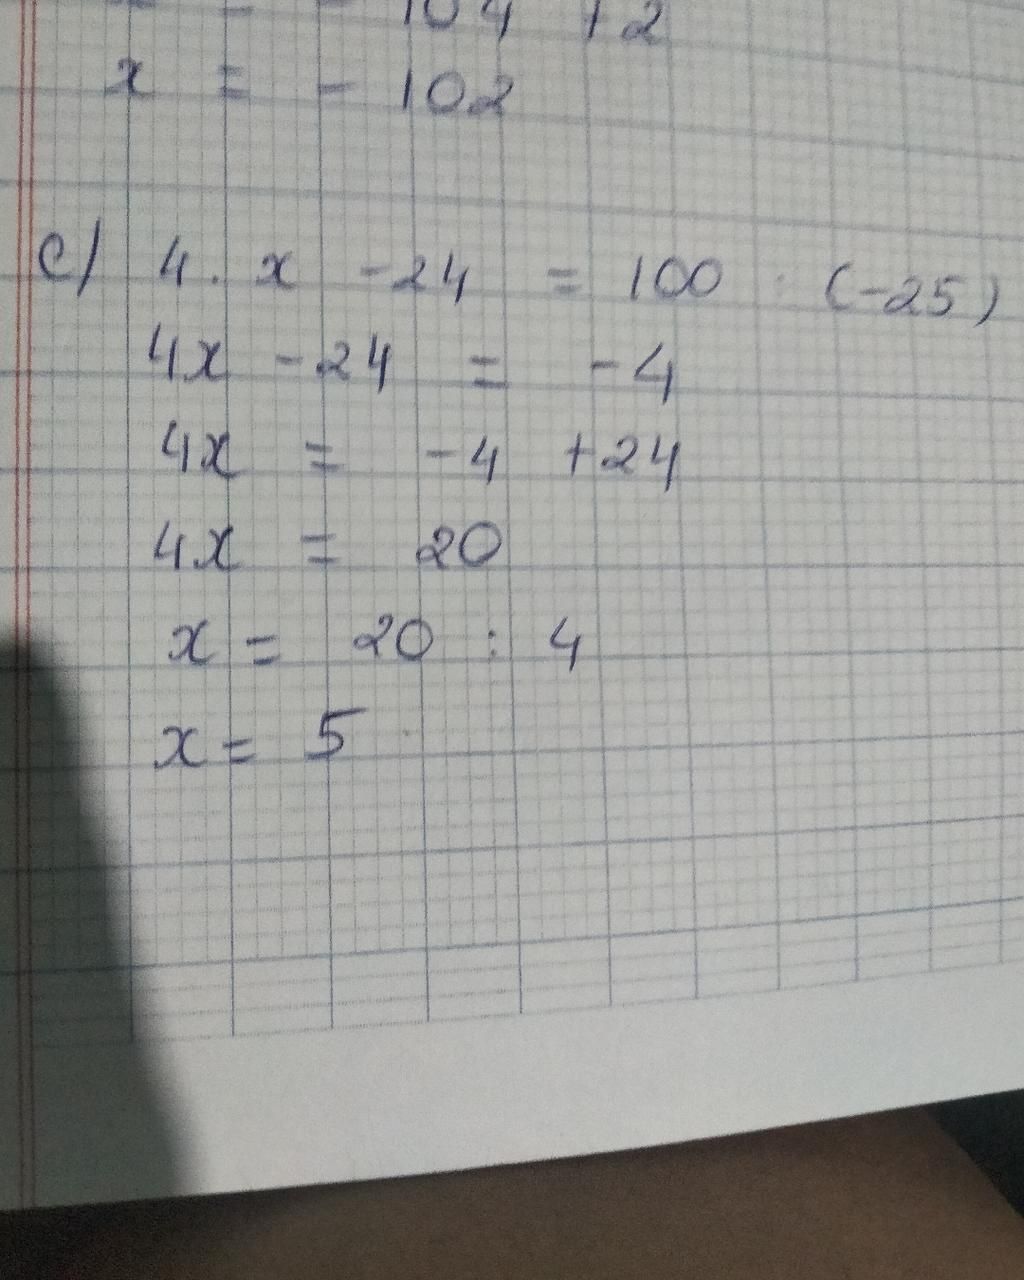 104 +2
x = - 102
c) 4. x - 24 = 100 : (-25)
4x - 24 = -4
4x = -4 +24
4x = 20
x = 20 : 4
x = 5